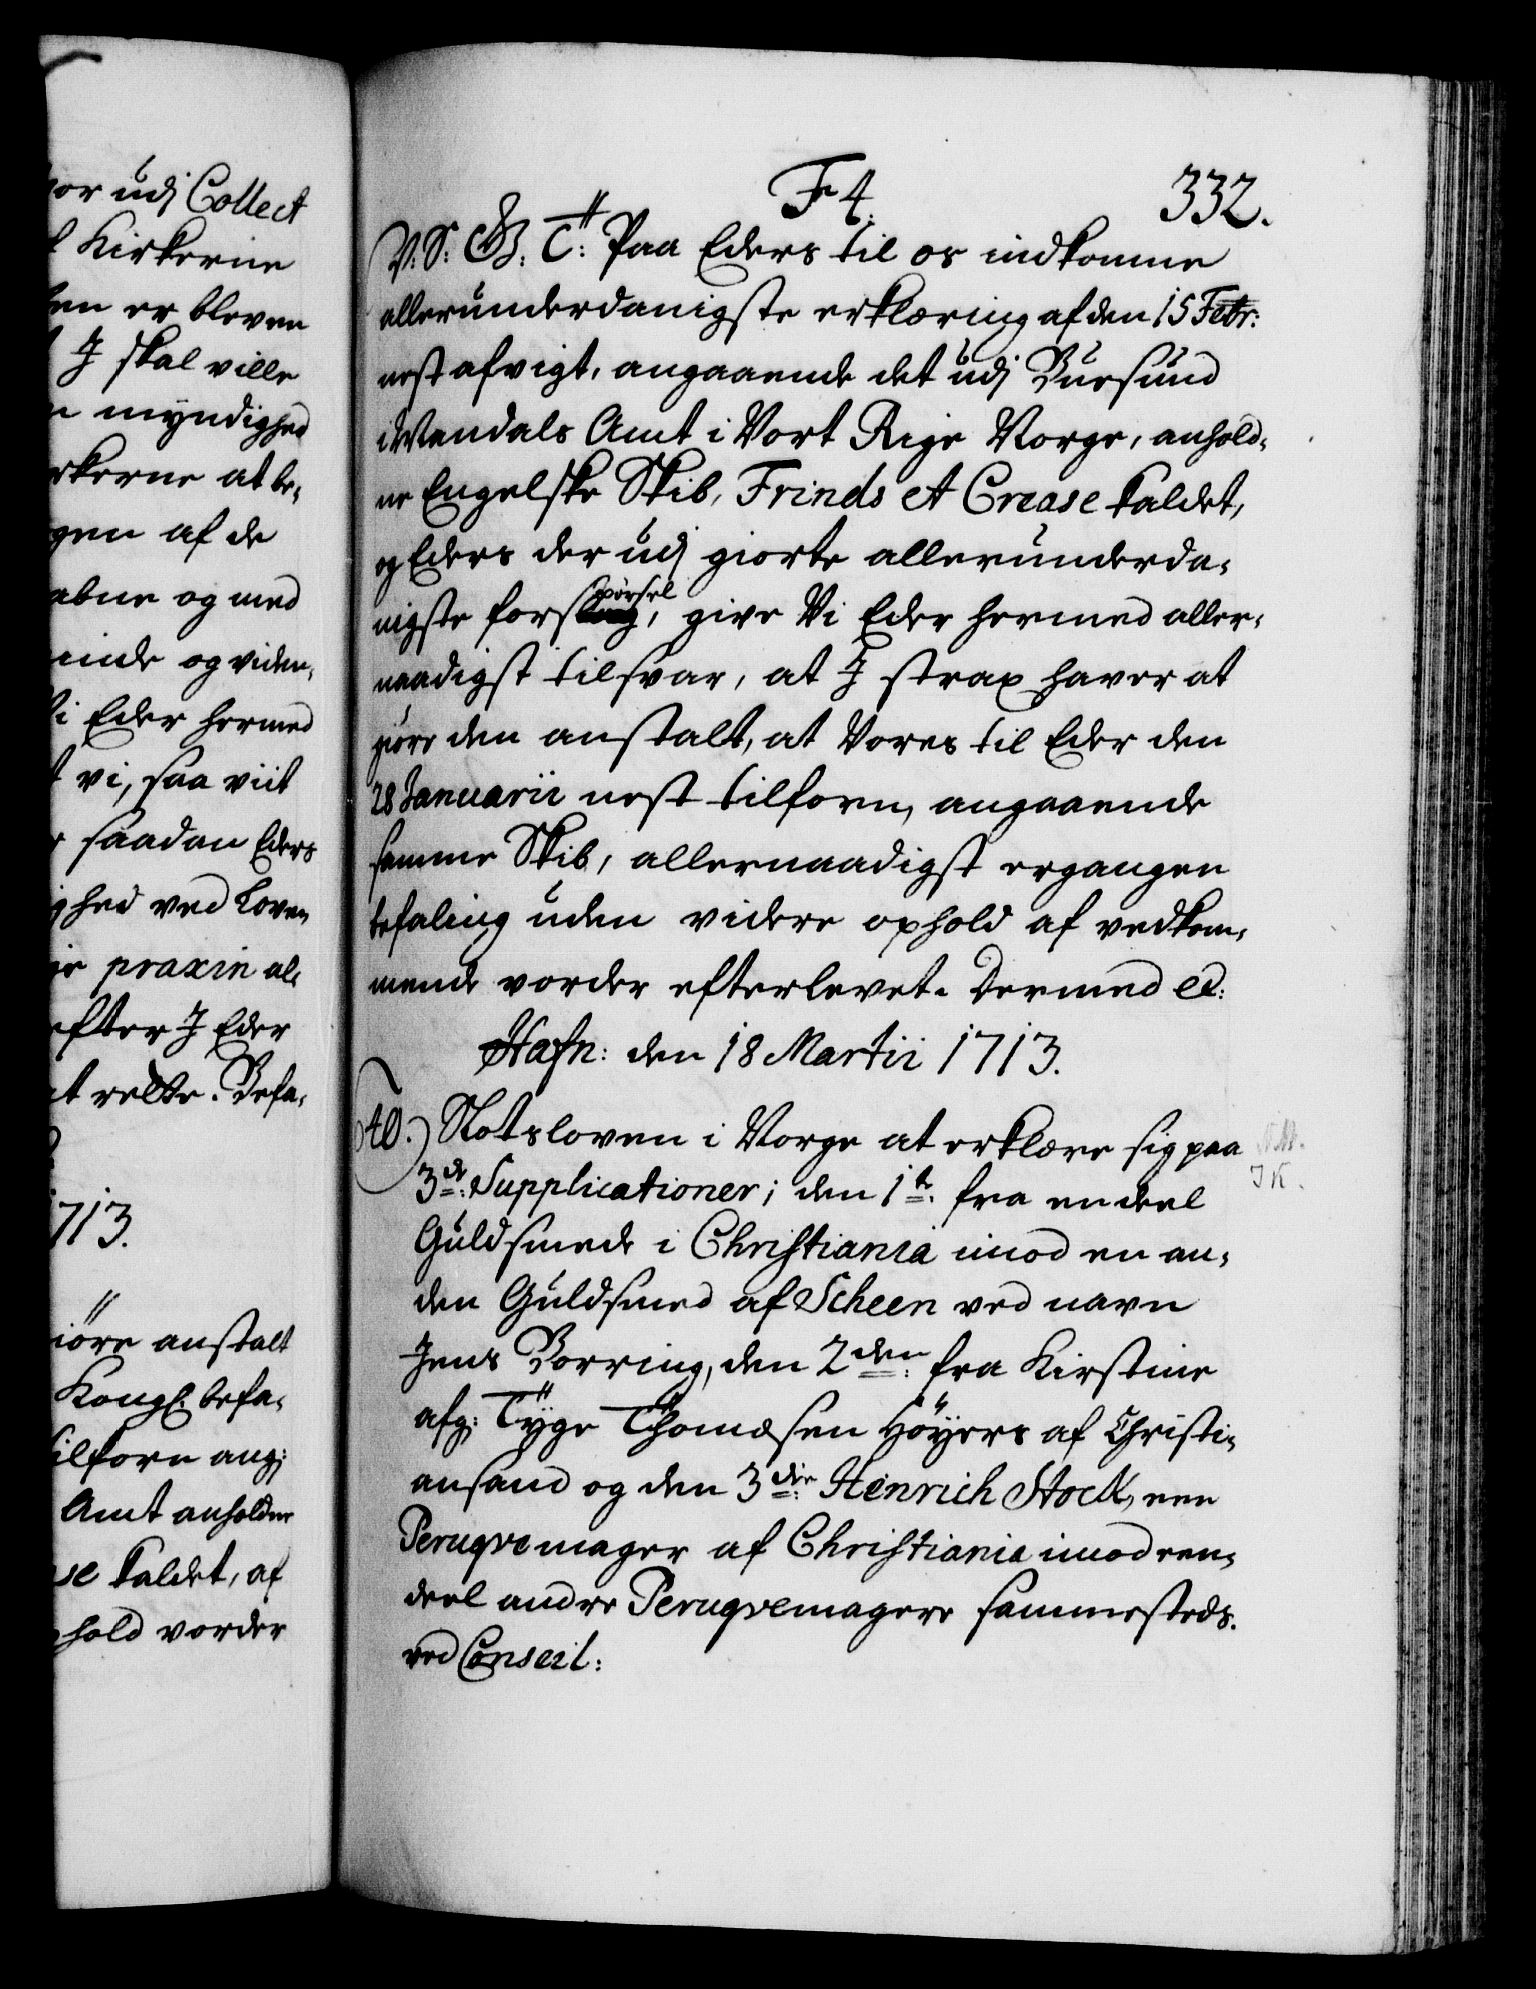 or udj Collect
Kirkerne
en er bleven
J skal ville
myndighed
rkerne at be-
gen af de
abne og med
inde og viden,
Vi Eder hermed
vi, saa viit
saadan Eders
ghed ved Loven
praxin al-
efter J Eder
at rette. Befa-
1713.
giöre anstalt
Kongl: befa-
tilforn ang:
Amt anholdne
se kaldet, af
hold vorder
F 4. 332.
V. S: G. T: Paa Eders til os indkomne
allerunderdanigste erklæring af den 15 Febr:
nest afvigt, angaaende det udj Buesund
i Mandals Amt i Vort Rige Norge, anhold-
ne Engelske Skib, Frinds et Crease kaldet,
og Eders der udj giorte allerunderda-
nigste forspörsel, give Vi Eder hermed aller-
naadigst tilsvar, at J strax haver at
giöre den anstalt, at Vores til Eder den
28 Januarii nest tilforn, angaaende
samme Skib, allernaadigst ergangen
befaling uden videre ophold af vedkom-
mende vorder efterlevet. Dermed et:
Hafn: den 18 Martii 1713.
40.) Slotsloven i Norge at erklære sig paa
3de: Supplicationer; den 1te. fra en deel
Guldsmede i Christiania imod en an-
den Guldsmed af Scheen ved navn
Jens Borring, den 2den: fra Kirstine
afg: Tÿge Thomæsen Höÿers af Christi-
ansand og den 3die: Henrich Stock, een
Peruqvemager af Christiania imod een-
deel andre Peruqvemagere sammesteds.
ved Conseil:
J K.